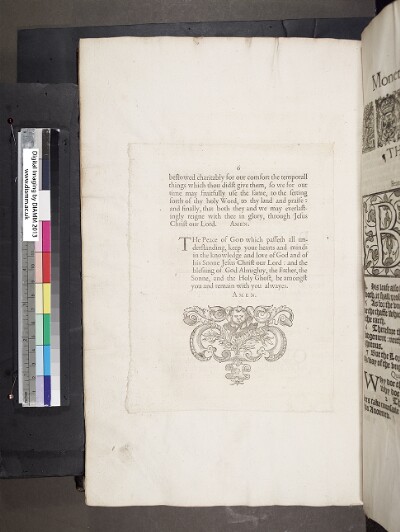 6
bestowed charitably for our comfort the temporall
things which thou didst give them, so we for our
time may fruitfully use the same, to the setting
forth of thy holy Word, to thy laud and praise:
and finally, that both they and we may everlast-
ingly reigne with thee in glory, through Jesus
Christ our Lord. AMEN.
THe Peace of GOD which passeth all un-
derstanding, keep your hearts and minds
in the knowledge and love of God and of
his Sonne Jesus Christ our Lord: and the
blessing of God Almighty, the Father, the
Sonne, and the Holy Ghost, be amongst
you and remain with you alwayes.
AMEN.
Digital Imaging by DIAMM 2013
www.diamm.ac.uk
Monet
TH
B